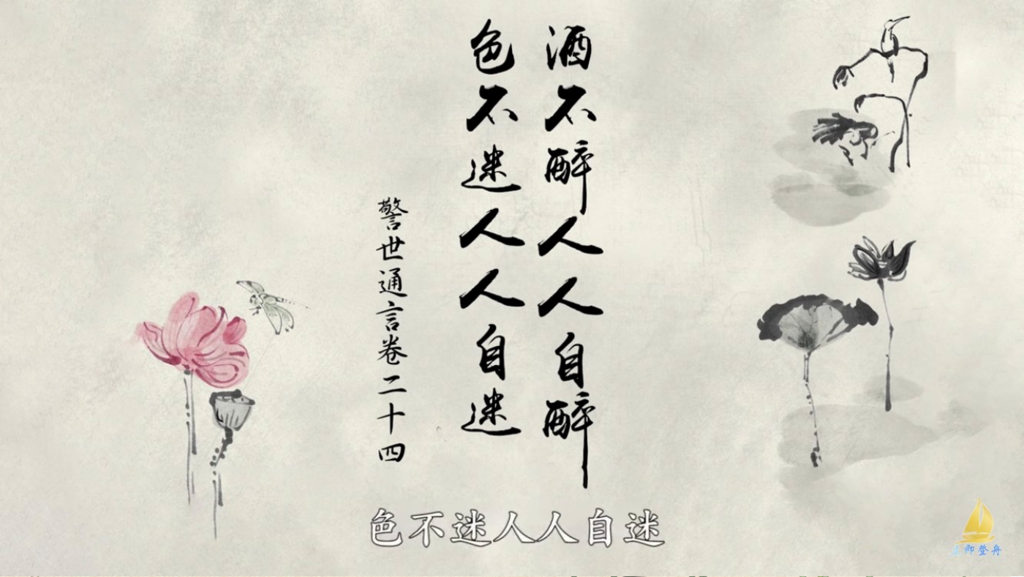 酒不醉人人自醉
色不迷人人自迷
警世通言卷二十四
色不迷人人自迷